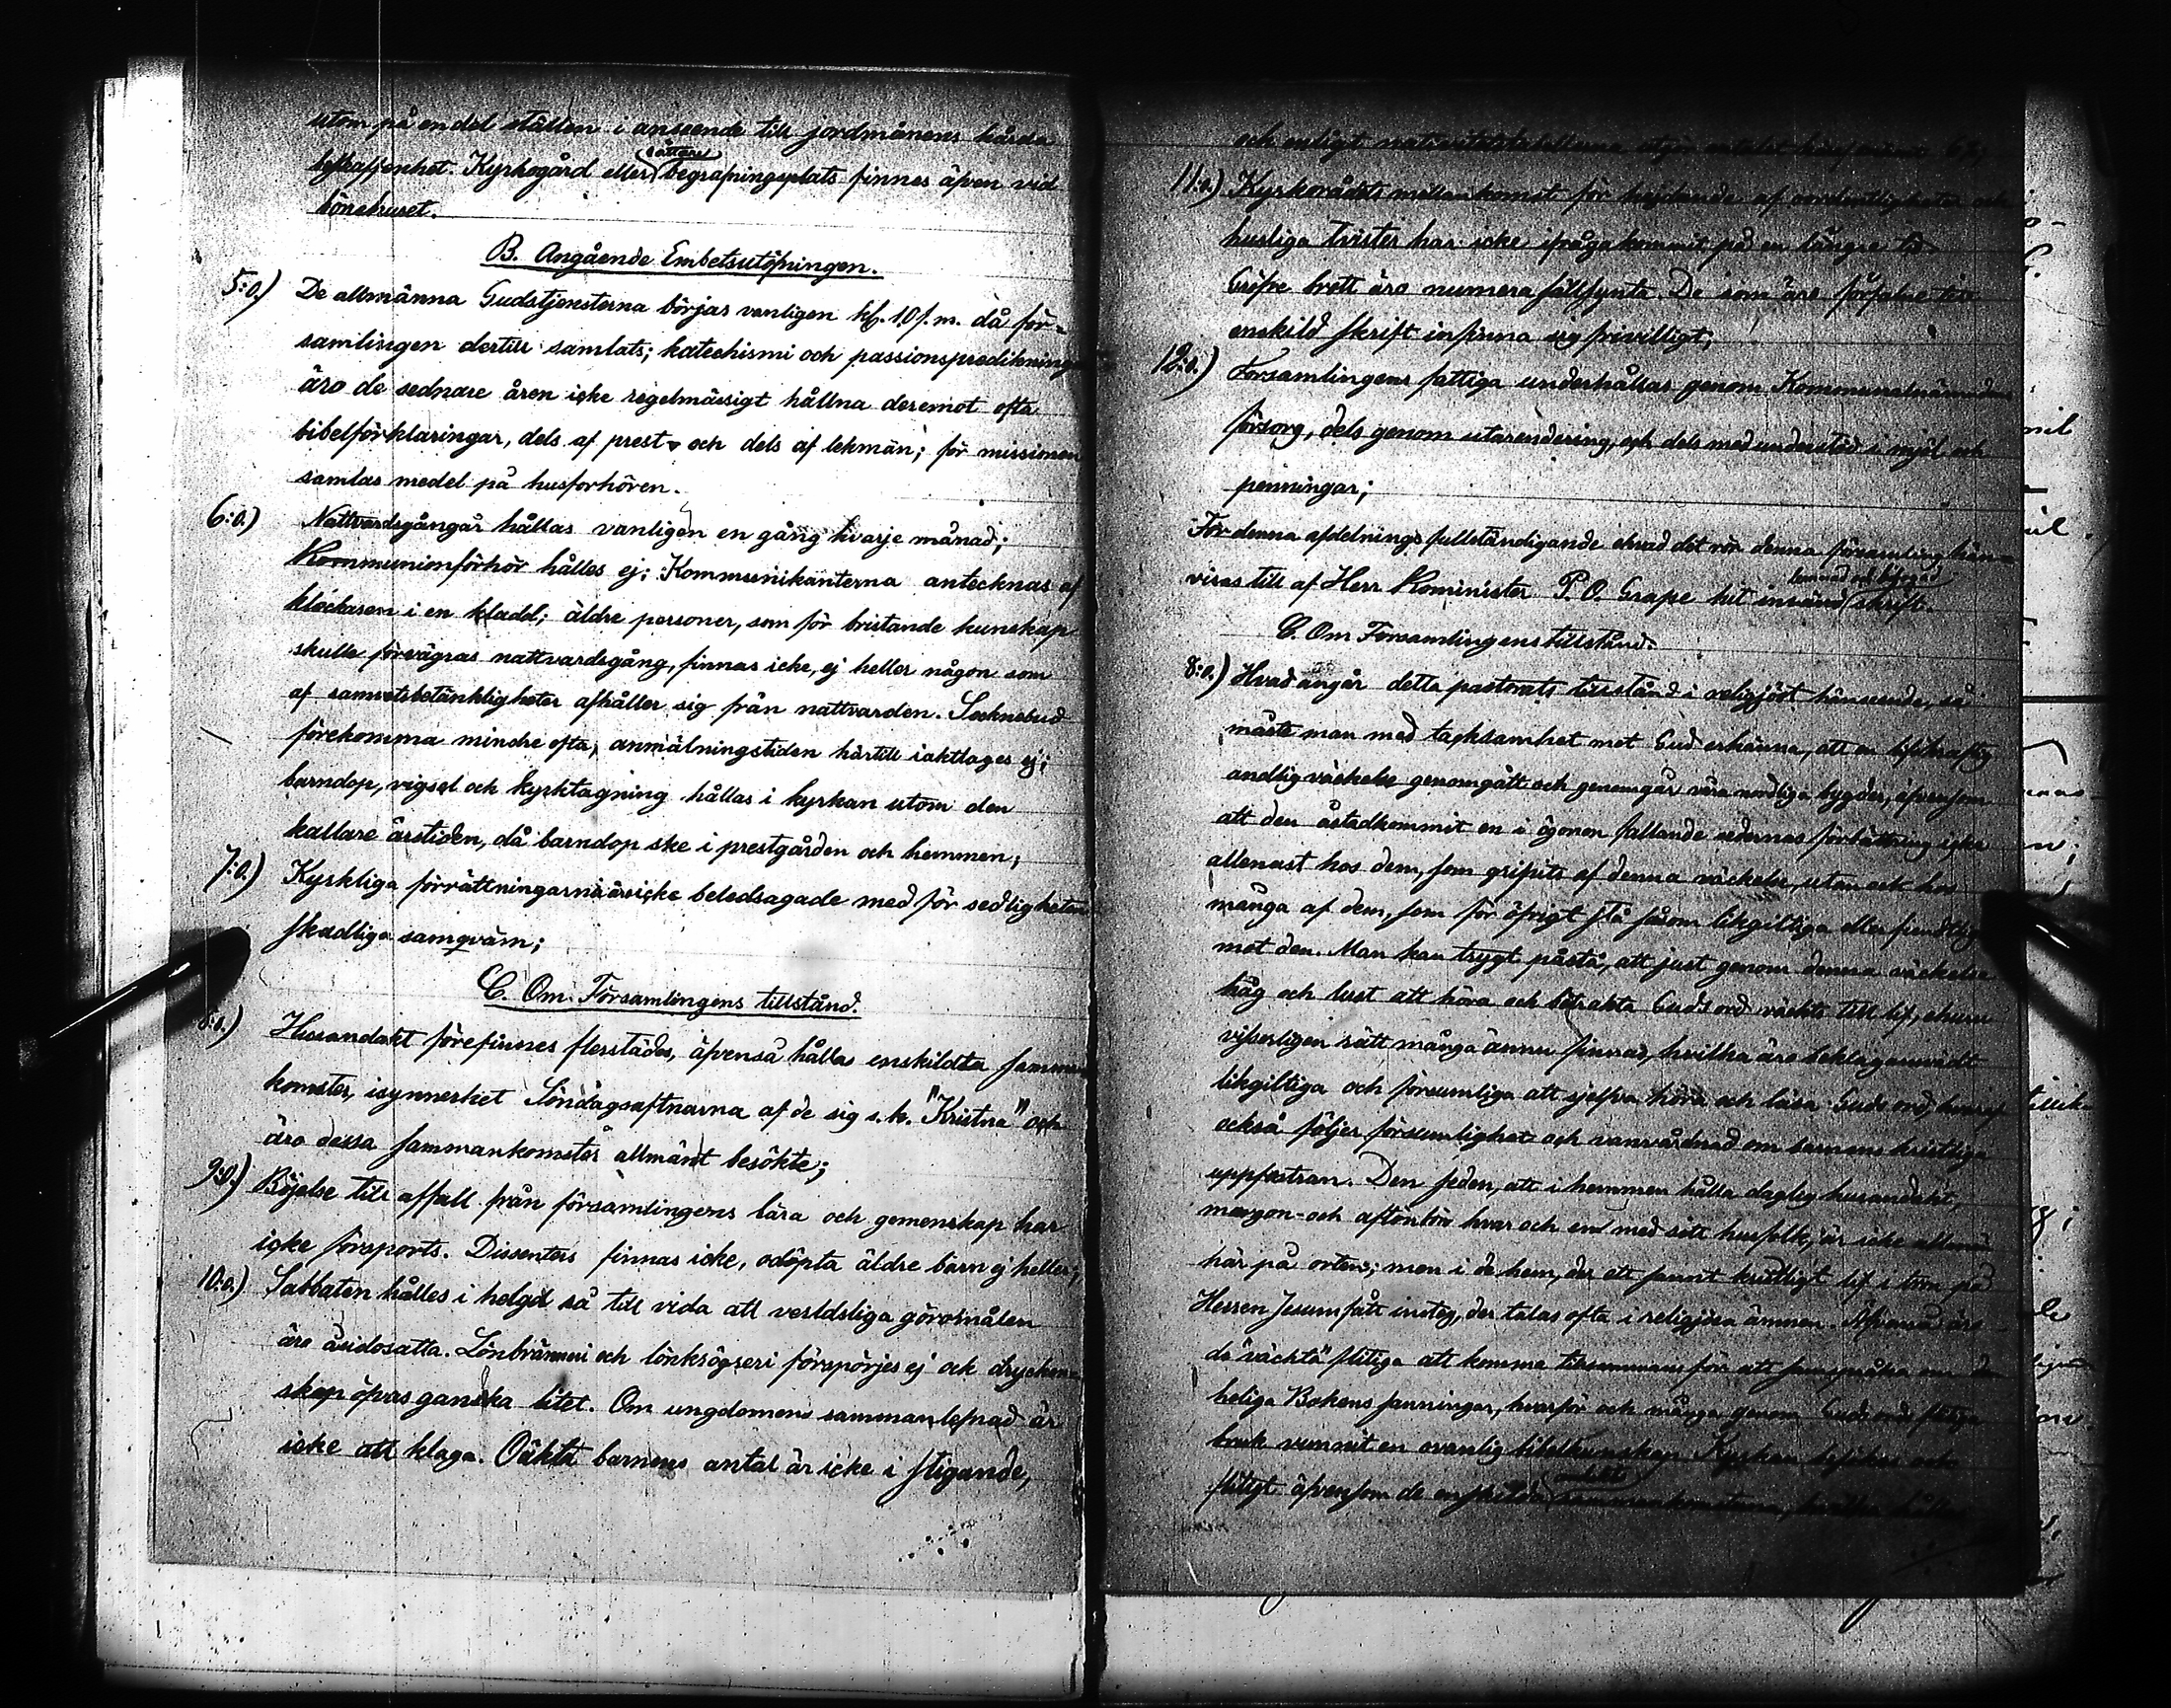 utom på en del ställen i anseende till jordmånens hårda
beskaffenhet. Kyrkogård eller begrafningsplats finnes äfven vid
bönehuset.
B. Angående Embetsutöfningen.
5:o.) De allmänna Gudstjensterna börjas vanligen kl. 10 f.m. då för-
samlingen dertill samlats; katechismi och passionspredikningar
äro de sednare åren icke regelmässigt hållna deremot ofta
bibelförklaringar, dels af prest och dels af lekmän; för missionen
samlas medel på husförhören.
6:o.) Nattvardsgångar hållas vanligen en gång hvarje månad;
Kommunionförhör hålles ej; Kommunikanterna antecknas af
klockaren i en kladd; äldre personer, som för bristande kunskap
skulle förvägras nattvardsgång, finnas icke, ej heller någon som
af samvetsbetänkligheter afhåller sig från nattvarden. Socknebud
förekomma mindre ofta; anmälningstiden härtill iakttages ej;
barndop, vigsel och kyrktagning hållas i kyrkan utom den
kallare årstiden, då barndop ske i prestgården och hemmen;
7:o.) Kyrkliga förrättningarna äro icke beledsagade med för sedligheten
skadliga samqväm;
C. Om Församlingens tillstånd.
8:o.) Husandakt förefinnes flerstädes, äfvenså hållas enskildta samman
komster, isynnerhet Söndagsaftnarna af de sig s.k. "Kristna" och
äro dessa sammankomster allmänt besökte;
9:o.) Böjelse till affall från församlingens lära och gemenskap har
icke försports. Dissenters finnas icke, odöpta äldre barn ej heller;
10:o.) Sabbaten hålles i helgd så till vida att verldsliga göromålen
äro åsidosatta. Lönbränneri och lönkrögeri förspörjes ej och drycken-
skap öfvas ganska litet. Om ungdomens sammanlefnad är
icke att klaga. Oäkta barnens antal är icke i stigande,
och enligt nativitetstabellerna
11:o.) Kyrkorådets mellankomst för höjdande af oordentligheter och
husliga tvister har icke ifrågakommit på en längre tid
Gröfre brott äro numera sällsynta. De som äro förfalne till
enskild skrift infinna sig frivilligt;
12:o.) Församlingens fattiga underhållas genom Kommunalnämndens
försorg, dels genom utarendering, och dels med understöd i mjöl och
penningar;
För denna afdelnings fullständigande ehvad det rör denna församling hän-
vises till af Herr Kominister P. O. Grape hit insänd skrift.
C. Om Församlingens tillstånd.
8:o.) Hvad angår detta pastorats tillstånd i religjöst hänseende, så
måste man med tacksamhet mot Gud erkänna, att en lifskraftig
andlig väckelse genomgått och genomgår våra nordliga bygder, äfvensom
att den åstadkommit en i ögonen fallande sedernas förbättring icke
allenast hos dem, som gripits af denna väckelse, utan ock hos
många af dem, som för öfrigt stå såsom likgiltiga eller fiendtliga
mot den. Man kan trygt påstå, att just genom denna väckelse
håg och lust att höra och betrakta Guds ord väckts till lif, ehuru
visserligen rätt många ännu finnas, hvilka äro beklagansvärdt
likgiltiga och försumliga att sjelfva höra och läsa Guds ord, hvaraf
också följer försumlighet och vanvårdnad om barnens kristliga
uppfostran. Den seden, att i hemmen hålla daglig husandakt,
morgon- och aftonbön hvar och en med sitt husfolk, är icke allmän
här på orten; men i de hem, der ett sannt kristligt lif i tron på
Herren Jesum fått insteg, der talas ofta i religjösa ämnen. Äfvenså äro
de "väckta" flitiga att komma tillsammans för att samspråka om den
heliga Bokens sanningar, hvarför och många genom Guds ords flitiga
bruk vunnit en ovanlig bibelkunskap. Kyrkan besökes ock
flitigt äfvensom de enskilda sammankomsterna, hvilka hållas